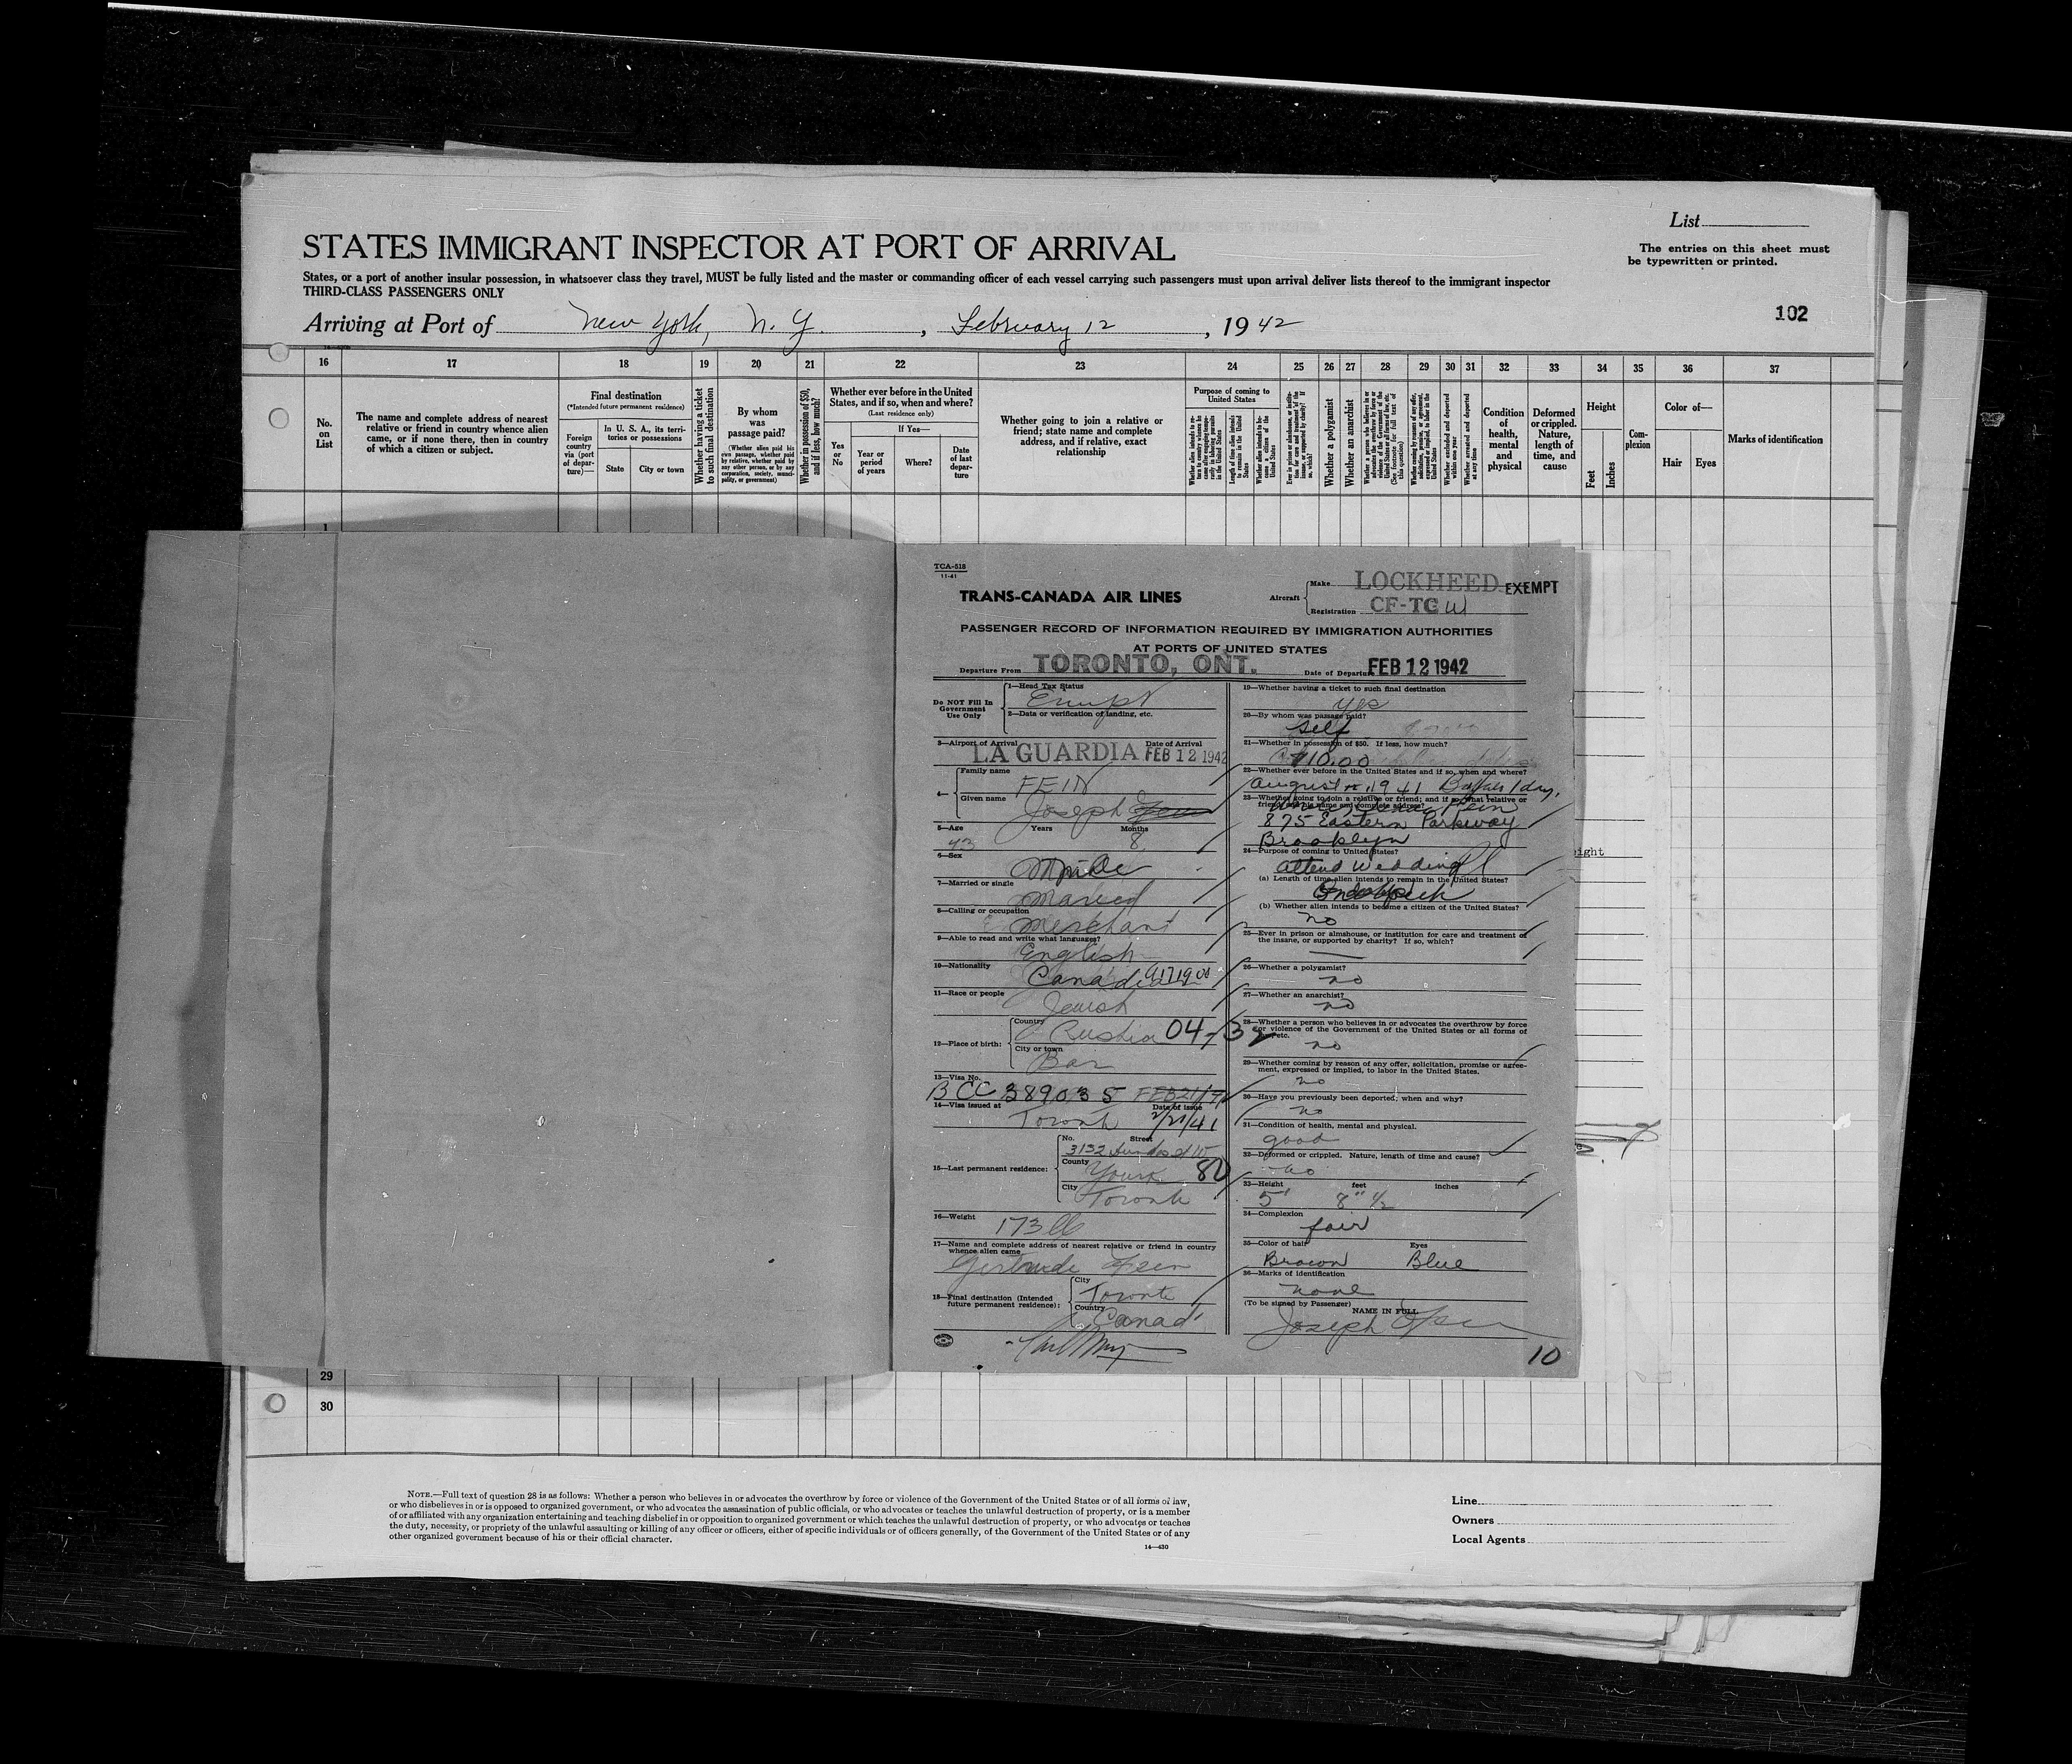 List
STATES IMMIGRANT INSPECTOR AT PORT OF ARRIVAL
The entries on this sheet must
be typewritten or printed.
States, or a port of another insular possession, in whatsoever class they travel, MUST be fully listed and the master or commanding officer of each vessel carrying such passengers must upon arrival deliver lists thereof to the immigrant inspector
THIRD-CLASS PASSENGERS ONLY
102
Arriving at Port of New York, N. Y., February 12, 1942
16 17 18 19 20 21 22 23 24 25 26 27 28 29 30 31 32 33 34 35 36 37
No. on List
The name and complete address of nearest
relative or friend in country whence alien
came, or if none there, then in country
of which a citizen or subject.
Final destination
(*Intended future permanent residence)
Foreign country via (port of departure)—
In U. S. A., its territories or possessions
State
City or town
Whether having a ticket to such final destination
By whom was passage paid?
(Whether alien paid his own passage, whether paid by relative, whether paid by any other person, or by any corporation, society, municipality, or government)
Whether in possession of $50, and if less, how much?
Whether ever before in the United
States, and if so, when and where?
(Last residence only)
Yes or No
If Yes—
Year or period of years
Where?
Date of last departure
Whether going to join a relative or
friend; state name and complete
address, and if relative, exact
relationship
Purpose of coming to
United States
Length of time alien intends to remain in the United States
Whether alien intends to become a citizen of the United States
Whether a polygamist
Whether an anarchist
Whether excluded and deported within one year
Whether arrested and deported at any time
Condition of health, mental and physical
Deformed or crippled. Nature, length of time, and cause
Height
Feet
Inches
Complexion
Color of—
Hair
Eyes
Marks of identification
1
TCA-518
11-41
TRANS-CANADA AIR LINES
Aircraft
Make LOCKHEED EXEMPT
Registration CF-TCW
PASSENGER RECORD OF INFORMATION REQUIRED BY IMMIGRATION AUTHORITIES
AT PORTS OF UNITED STATES
Departure From TORONTO, ONT. Date of Departure FEB 12 1942
Do NOT Fill In
Government
Use Only
1—Head Tax Status
Exempt
2—Data or verification of landing, etc.
3—Airport of Arrival LA GUARDIA Date of Arrival FEB 12 1942
4— Family name FEIN
Given name Joseph
5—Age Years 43 Months 8
6—Sex Male
7—Married or single Married
8—Calling or occupation
Merchant
9—Able to read and write what languages?
English
10—Nationality Canadian
11—Race or people Jewish
12—Place of birth:
Country Russia 04-32
City or town
Bar
13—Visa No.
BCC 389035 FEB 21/41
14—Visa issued at Toronto Date of issue 2/21/41
15—Last permanent residence:
No. Street
3132 Dundas St W
County York 80
City Toronto
16—Weight 173 lb
17—Name and complete address of nearest relative or friend in country
whence alien came
Gertrude Fein
18—Final destination (Intended
future permanent residence):
City Toronto
Country Canada
19—Whether having a ticket to such final destination
yes
20—By whom was passage paid?
Self
21—Whether in possession of $50. If less, how much?
$10.00
22—Whether ever before in the United States and if so, when and where?
August 1941 Buffalo 1 day.
23—Whether going to join a relative or friend; and if so, what relative or
friend, and his name and complete address?
Fein
875 Eastern Parkway
Brooklyn
24—Purpose of coming to United States?
attend Wedding
(a) Length of time alien intends to remain in the United States?
(b) Whether alien intends to become a citizen of the United States?
no
25—Ever in prison or almshouse, or institution for care and treatment of
the insane, or supported by charity? If so, which?
26—Whether a polygamist?
no
27—Whether an anarchist?
no
28—Whether a person who believes in or advocates the overthrow by force
or violence of the Government of the United States or all forms of
etc.
no
29—Whether coming by reason of any offer, solicitation, promise or agree-
ment, expressed or implied, to labor in the United States.
no
30—Have you previously been deported; when and why?
no
31—Condition of health, mental and physical.
good
32—Deformed or crippled. Nature, length of time and cause?
no
33—Height feet inches
5' 8" ½
34—Complexion
fair
35—Color of hair Eyes
Brown Blue
36—Marks of identification
none
(To be signed by Passenger) NAME IN FULL
Joseph Fein
10
29
30
NOTE.—Full text of question 28 is as follows: Whether a person who believes in or advocates the overthrow by force or violence of the Government of the United States or of all forms of law,
or who disbelieves in or is opposed to organized government, or who advocates the assassination of public officials, or who advocates or teaches the unlawful destruction of property, or is a member
of or affiliated with any organization entertaining and teaching disbelief in or opposition to organized government or which teaches the unlawful destruction of property, or who advocates or teaches
the duty, necessity, or propriety of the unlawful assaulting or killing of any officer or officers, either of specific individuals or of officers generally, of the Government of the United States or of any
other organized government because of his or their official character.
14—430
Line
Owners
Local Agents